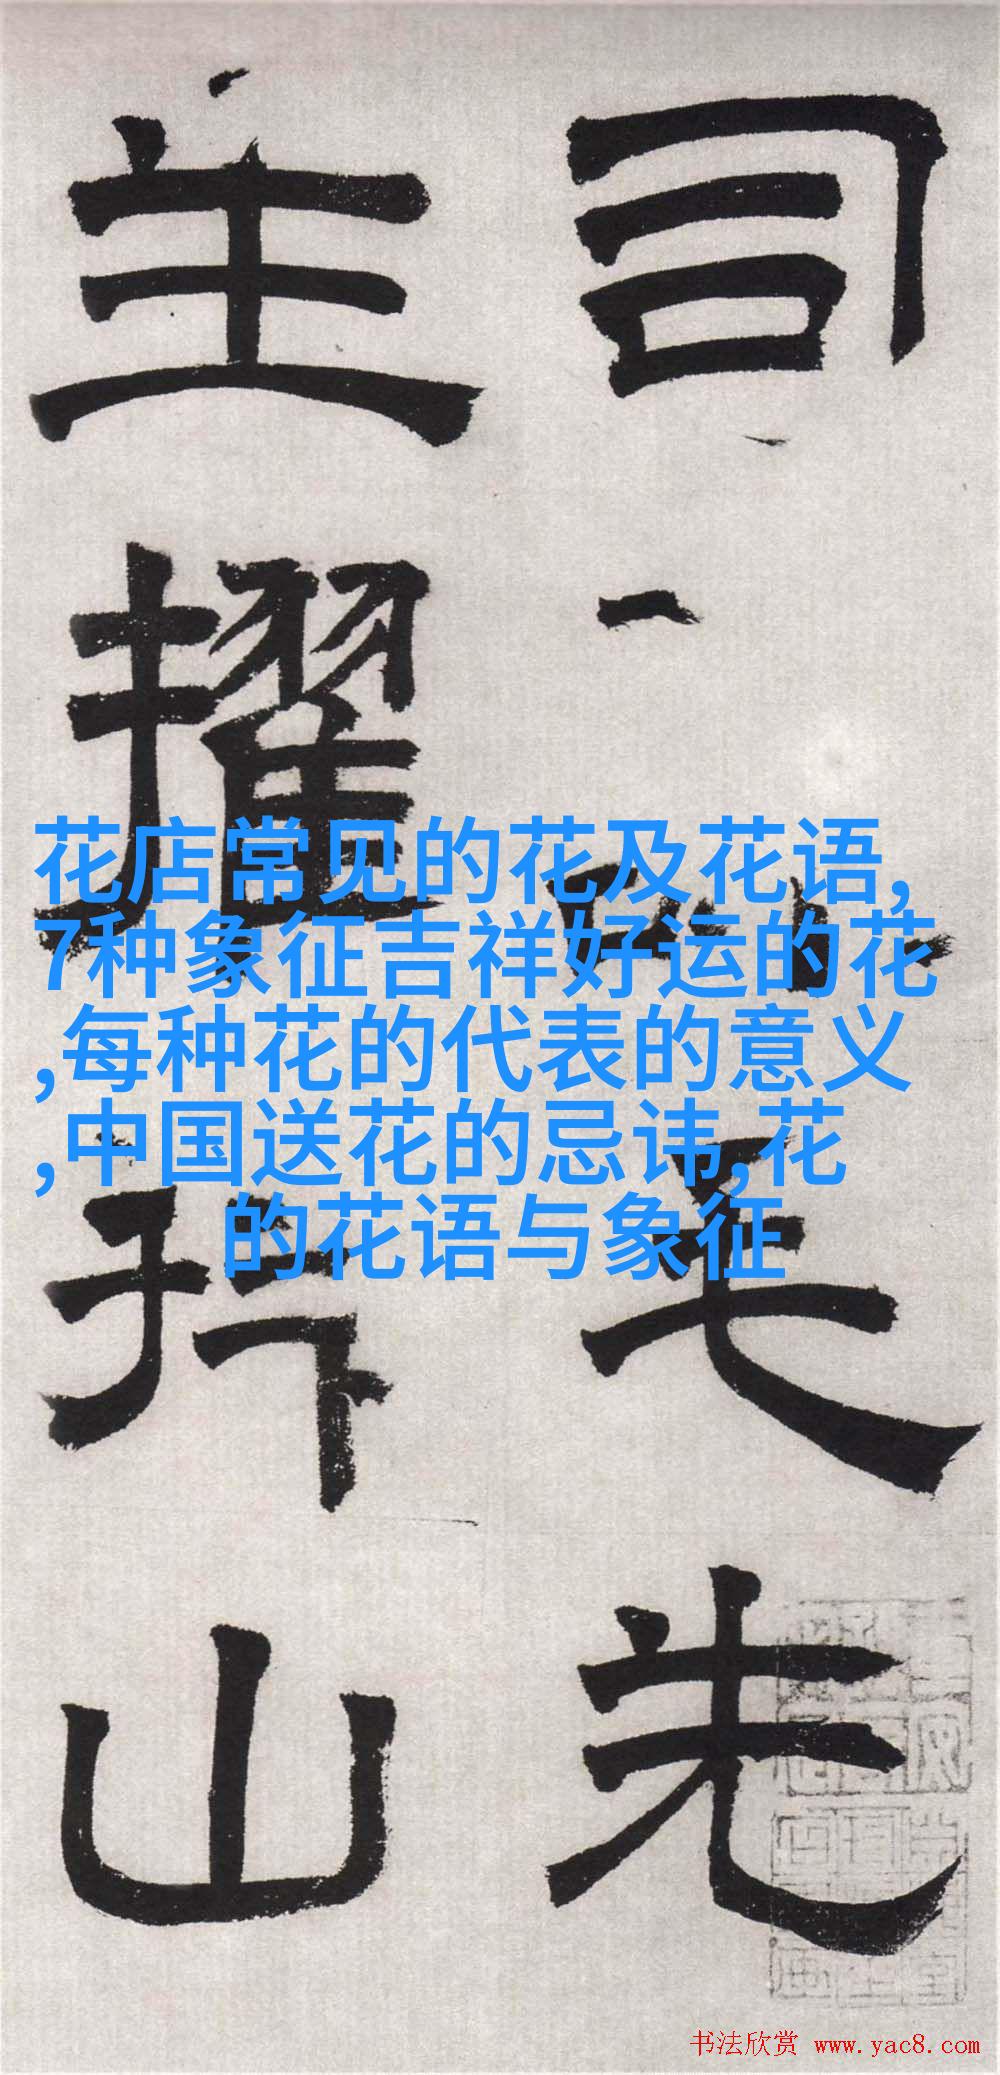 司
毛先
主擢
山
花店常见的花及花语,
7种象征吉祥好运的花
,每种花的代表的意义
,中国送花的忌讳,花
的花语与象征
书法欣赏 www.yac8.com